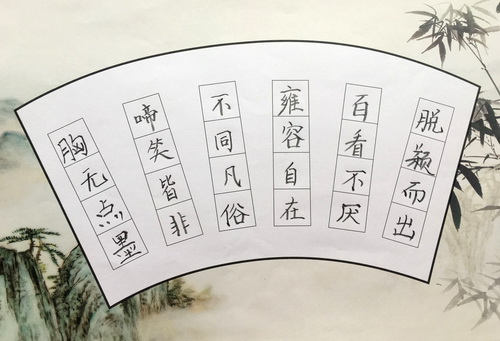 脱颖而出
百看不厌
雍容自在
不同凡俗
啼笑皆非
胸无点墨